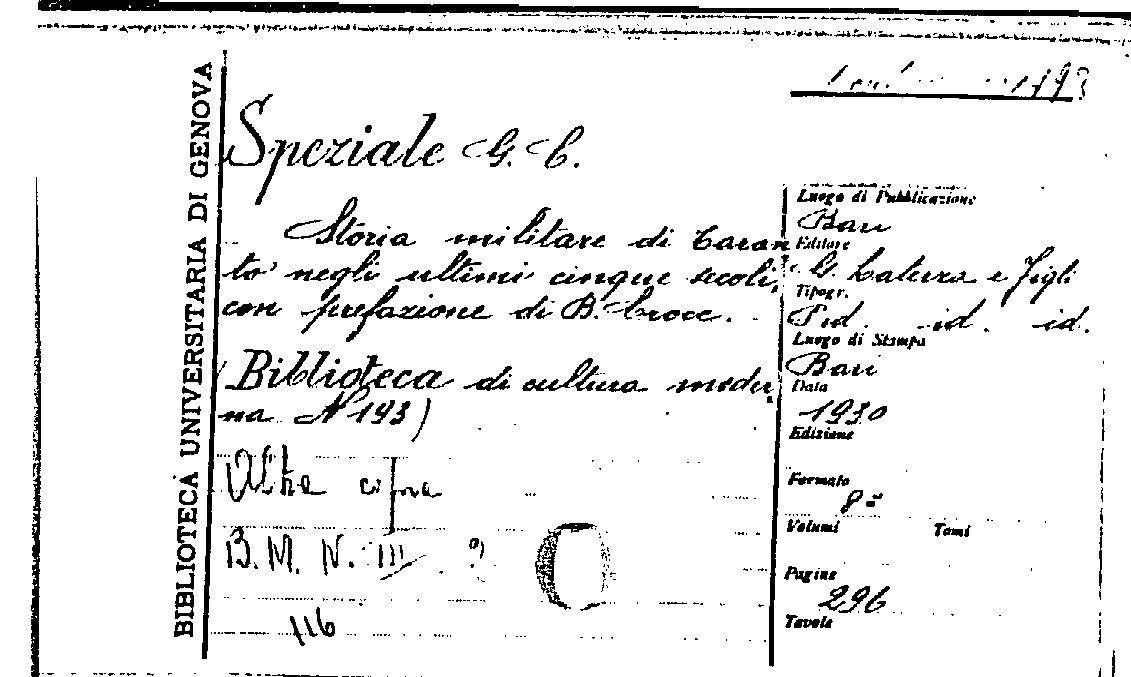 BIBLIOTECA UNIVERSITARIA DI GENOVA
193
Speziale G. C.
Storia militare di Taran
to negli ultimi cinque secoli,
con prefazione di B. Croce.
(Biblioteca di cultura moder
na N 193)
Altra copia
B. M. N. III
116
Luogo di Pubblicazione
Bari
Editore
G. Laterza e Figli
Tipogr.
id. id.
Luogo di Stampa
Bari
Data
1930
Edizione
Formato
8º
Volumi Tomi
Pagine
296
Tavole